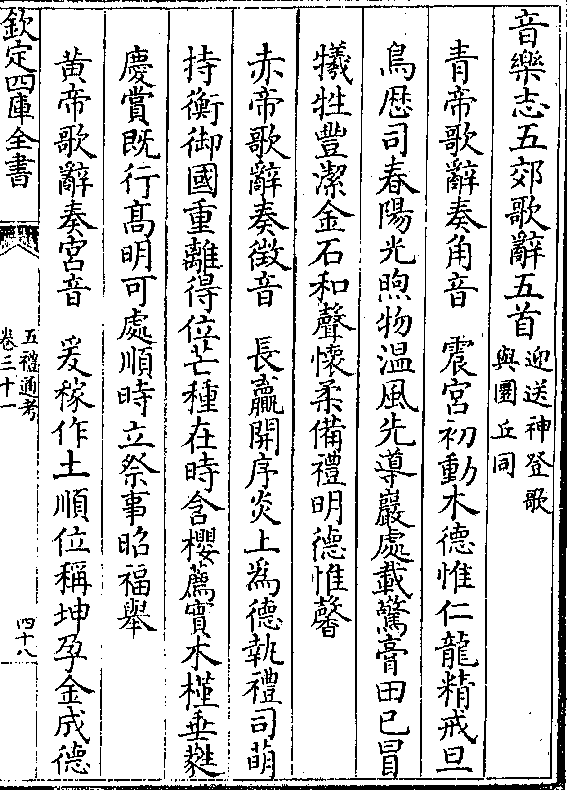 音樂志五郊歌辭五首
迎送神登歌
與圜丘同
青帝歌辭奏角音　震宮初動木德惟仁龍精戒旦
鳥歴司春陽光煦物温風先導巖處載驚膏田已冒
犧牲豐潔金石和聲懷柔備禮明德惟馨
赤帝歌辭奏徴音　長嬴開序炎上爲德執禮司萌
持衡御國重離得位芒種在時含櫻薦實木槿垂蕤
慶賞既行髙明可處順時立祭事昭福舉
黄帝歌辭奏宮音　爰稼作土順位稱坤孕金成德
欽定四庫全書
五禮通考
卷三十一
四十八